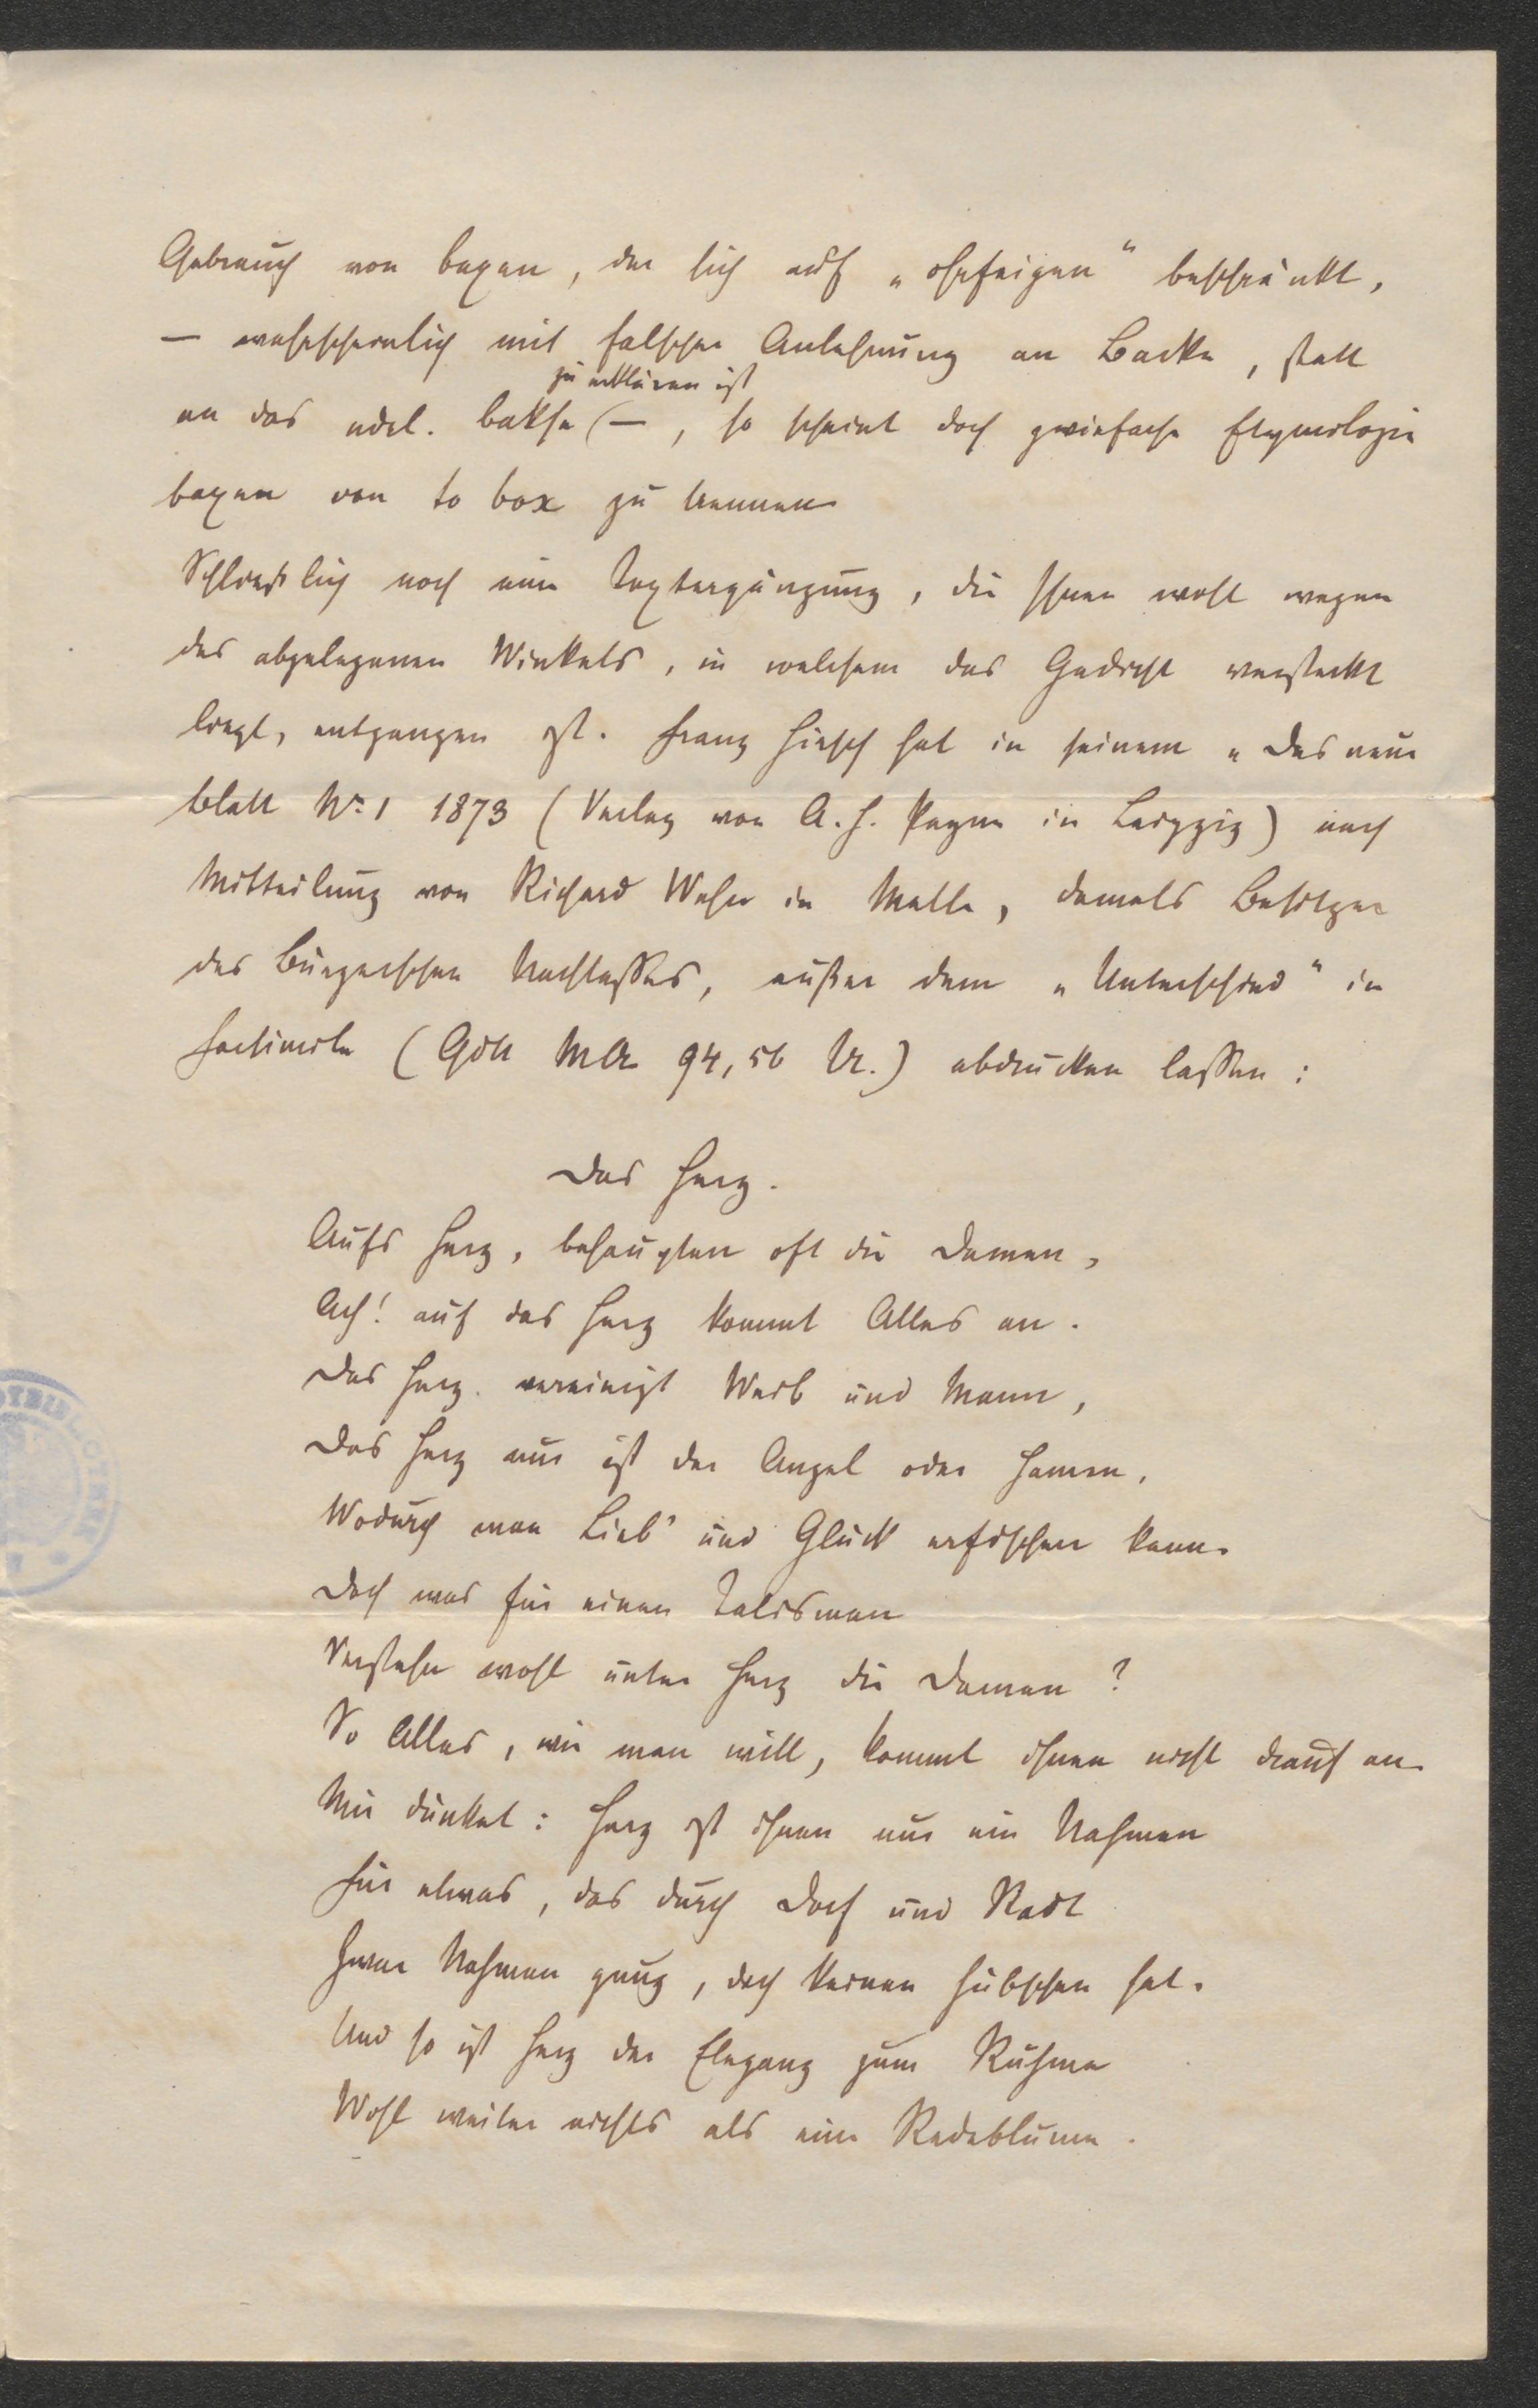 Gebrauch von baxen, der sich auf „ohrfeigen“ beschränkt,
— wahrscheinlich mit falscher Anlehnung an Backe, statt
zu erklären ist
an das ndl. bakse (—, so scheint doch zwiefache Etymologie
baxen von to box zu trennen.
Schließlich noch eine Textergänzung, die Ihnen wohl wegen
des abgelegenen Winkels, in welchem das Gedicht versteckt
liegt, entgangen ist. Franz Hirsch hat in seinem „Das neue
Blatt No. 1 1873 (Verlag von A. H. Payne in Leipzig) nach
Mitteilung von Richard in Melle, damals Besitzer
des Bürgerschen Nachlasses, außer dem „Unterschied“ in
Facsimile (Gött MA 94, 56 U.) abdrucken lassen:
Das Herz.
Aufs Herz, behaupten oft die Damen,
Ach! auf das Herz kommt Alles an.
Das Herz vereinigt Weib und Mann,
Das Herz nur ist der Angel oder Hamen,
Wodurch man Lieb' und Glück erfischen kann.
Doch was für einen Talisman
Verstehn wohl unter Herz die Damen?
So Alles, wie man will, kommt ihnen nicht drauf an.
Mir dünket: Herz ist ihnen nur ein Nahmen
Für etwas, das durch Dorf und Stadt
Zwar Nahmen gnug, doch keinen hübschen hat.
Und so ist Herz der Eleganz zum Ruhme
Wohl weiter nichts als eine Redeblume.